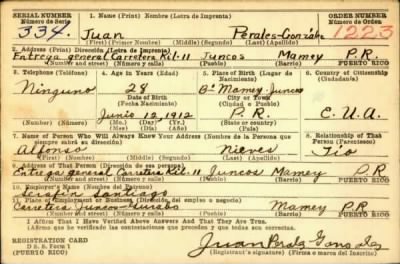 SERIAL NUMBER 1. Name (Print) Nombre (Letra de Imprenta) ORDER NUMBER
Número de Serie Número de Orden
334. Juan Perales-González 1223
(First) (Primer) Nombre (Middle) (Segundo) (Last) (Apellido)
2. Address (Print) Dirección (Letra de Imprenta)
Entrega general Carretera Kil-11 Juncos Mamey P.R.
(Number and street) (Número y calle) (Town) (Pueblo) (Barrio) PUERTO RICO
3. Telephone (Teléfono) 4. Age in Years (Edad) 5. Place of Birth (Lugar de Nacimiento) 6. Country of Citizenship (Ciudadanía)
Ninguno 28 Bo Mamey-Juncos
Date of Birth City or Town
Fecha Nacimiento Ciudad o Pueblo
Junio 12, 1912 P.R. E.U.A.
(Mo.) (Mes) (Day) (Día) (Yr.) (Año) State or country
7. Name of Person Who Will Always Know Your Address (Nombre de la Persona que siempre sabrá su dirección) 8. Relationship of That Person (Parentesco)
Alfonso Nieves Tío
(First) (Primer) Nombre (Middle) (Segundo) (Last) Apellido
9. Address of That Person (Dirección de esa persona)
Entrega general Carretera Kil-11 Juncos Mamey P.R
(Number and street) (Número y calle) (Town) (Pueblo) (Barrio) PUERTO RICO
10. Employer's Name (Nombre del Patrono)
Serafín Santiago
11. Place of Employment or Business (Dirección del empleo o negocio)
Carretera Juncos-Gurabo Mamey P.R
(Number and street) (Número y calle) (Town) (Pueblo) (Barrio) PUERTO RICO
I Affirm That I Have Verified Above Answers And That They Are True.
(Afirmo que he verificado las contestaciones que preceden y que todas son correctas.)
REGISTRATION CARD
D.S.S. Form 1
(PUERTO RICO)
Juan Perales González
(Registrant's signature) (Firma o marca del inscrito)